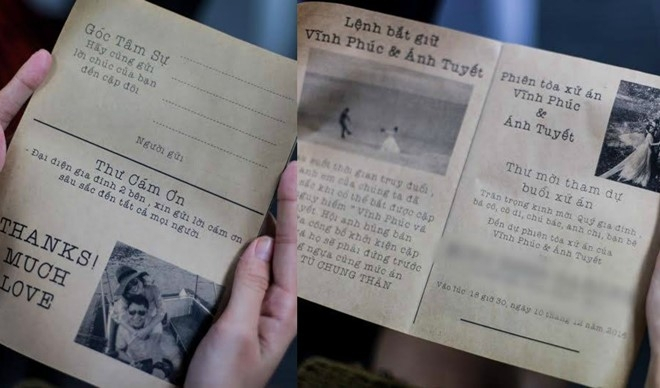 Góc Tâm Sự
Hãy cùng gửi
lời chúc của bạn
đến cặp đôi
Người gửi
Thư Cám Ơn
- Đại diện gia đình 2 bên , xin gửi lời cám ơn
sâu sắc đến tất cả mọi người
THANKS!
MUCH
LOVE
Lệnh bắt giữ
Vĩnh Phúc & Ánh Tuyết
suốt thời gian truy đuổi ,
anh em của chúng ta đã
sắc khi có thể bắt được cặp
nguy hiểm " Vĩnh Phúc và
Tuyết. Hội anh hùng bàn
công bố khởi kiện cặp
và họ sẽ phải đứng trước
ngựa cùng mức án
TÙ CHUNG THÂN
Phiên tòa xử án
Vĩnh Phúc
&
Ánh Tuyết
Thư mời tham dự
buổi xử án
Trân trọng kính mời Quý gia đình ,
bà cô, cô dì, chú bác, anh chị, bạn bè
Đến dự phiên tòa xử án của
Vĩnh Phúc & Ánh Tuyết
Vào lúc 18 giờ 30, ngày 10 tháng 12 năm